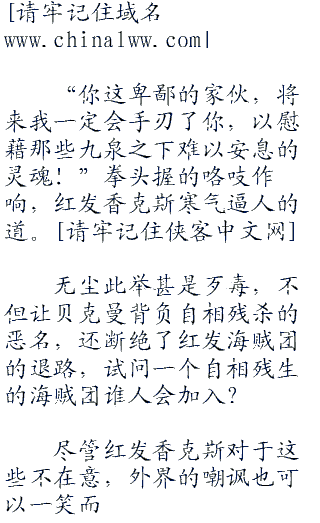 [请牢记住域名
www.china1ww.com|
“你这卑鄙的家伙，将
来我一定会手刃了你，以慰
藉那些九泉之下难以安息的
灵魂！”拳头握的咯吱作
响，红发香克斯寒气逼人的
道。[请牢记住侠客中文网]
无尘此举甚是歹毒，不
但让贝克曼背负自相残杀的
恶名，还断绝了红发海贼团
的退路，试问一个自相残生
的海贼团谁人会加入？
尽管红发香克斯对于这
些不在意，外界的嘲讽也可
以一笑而